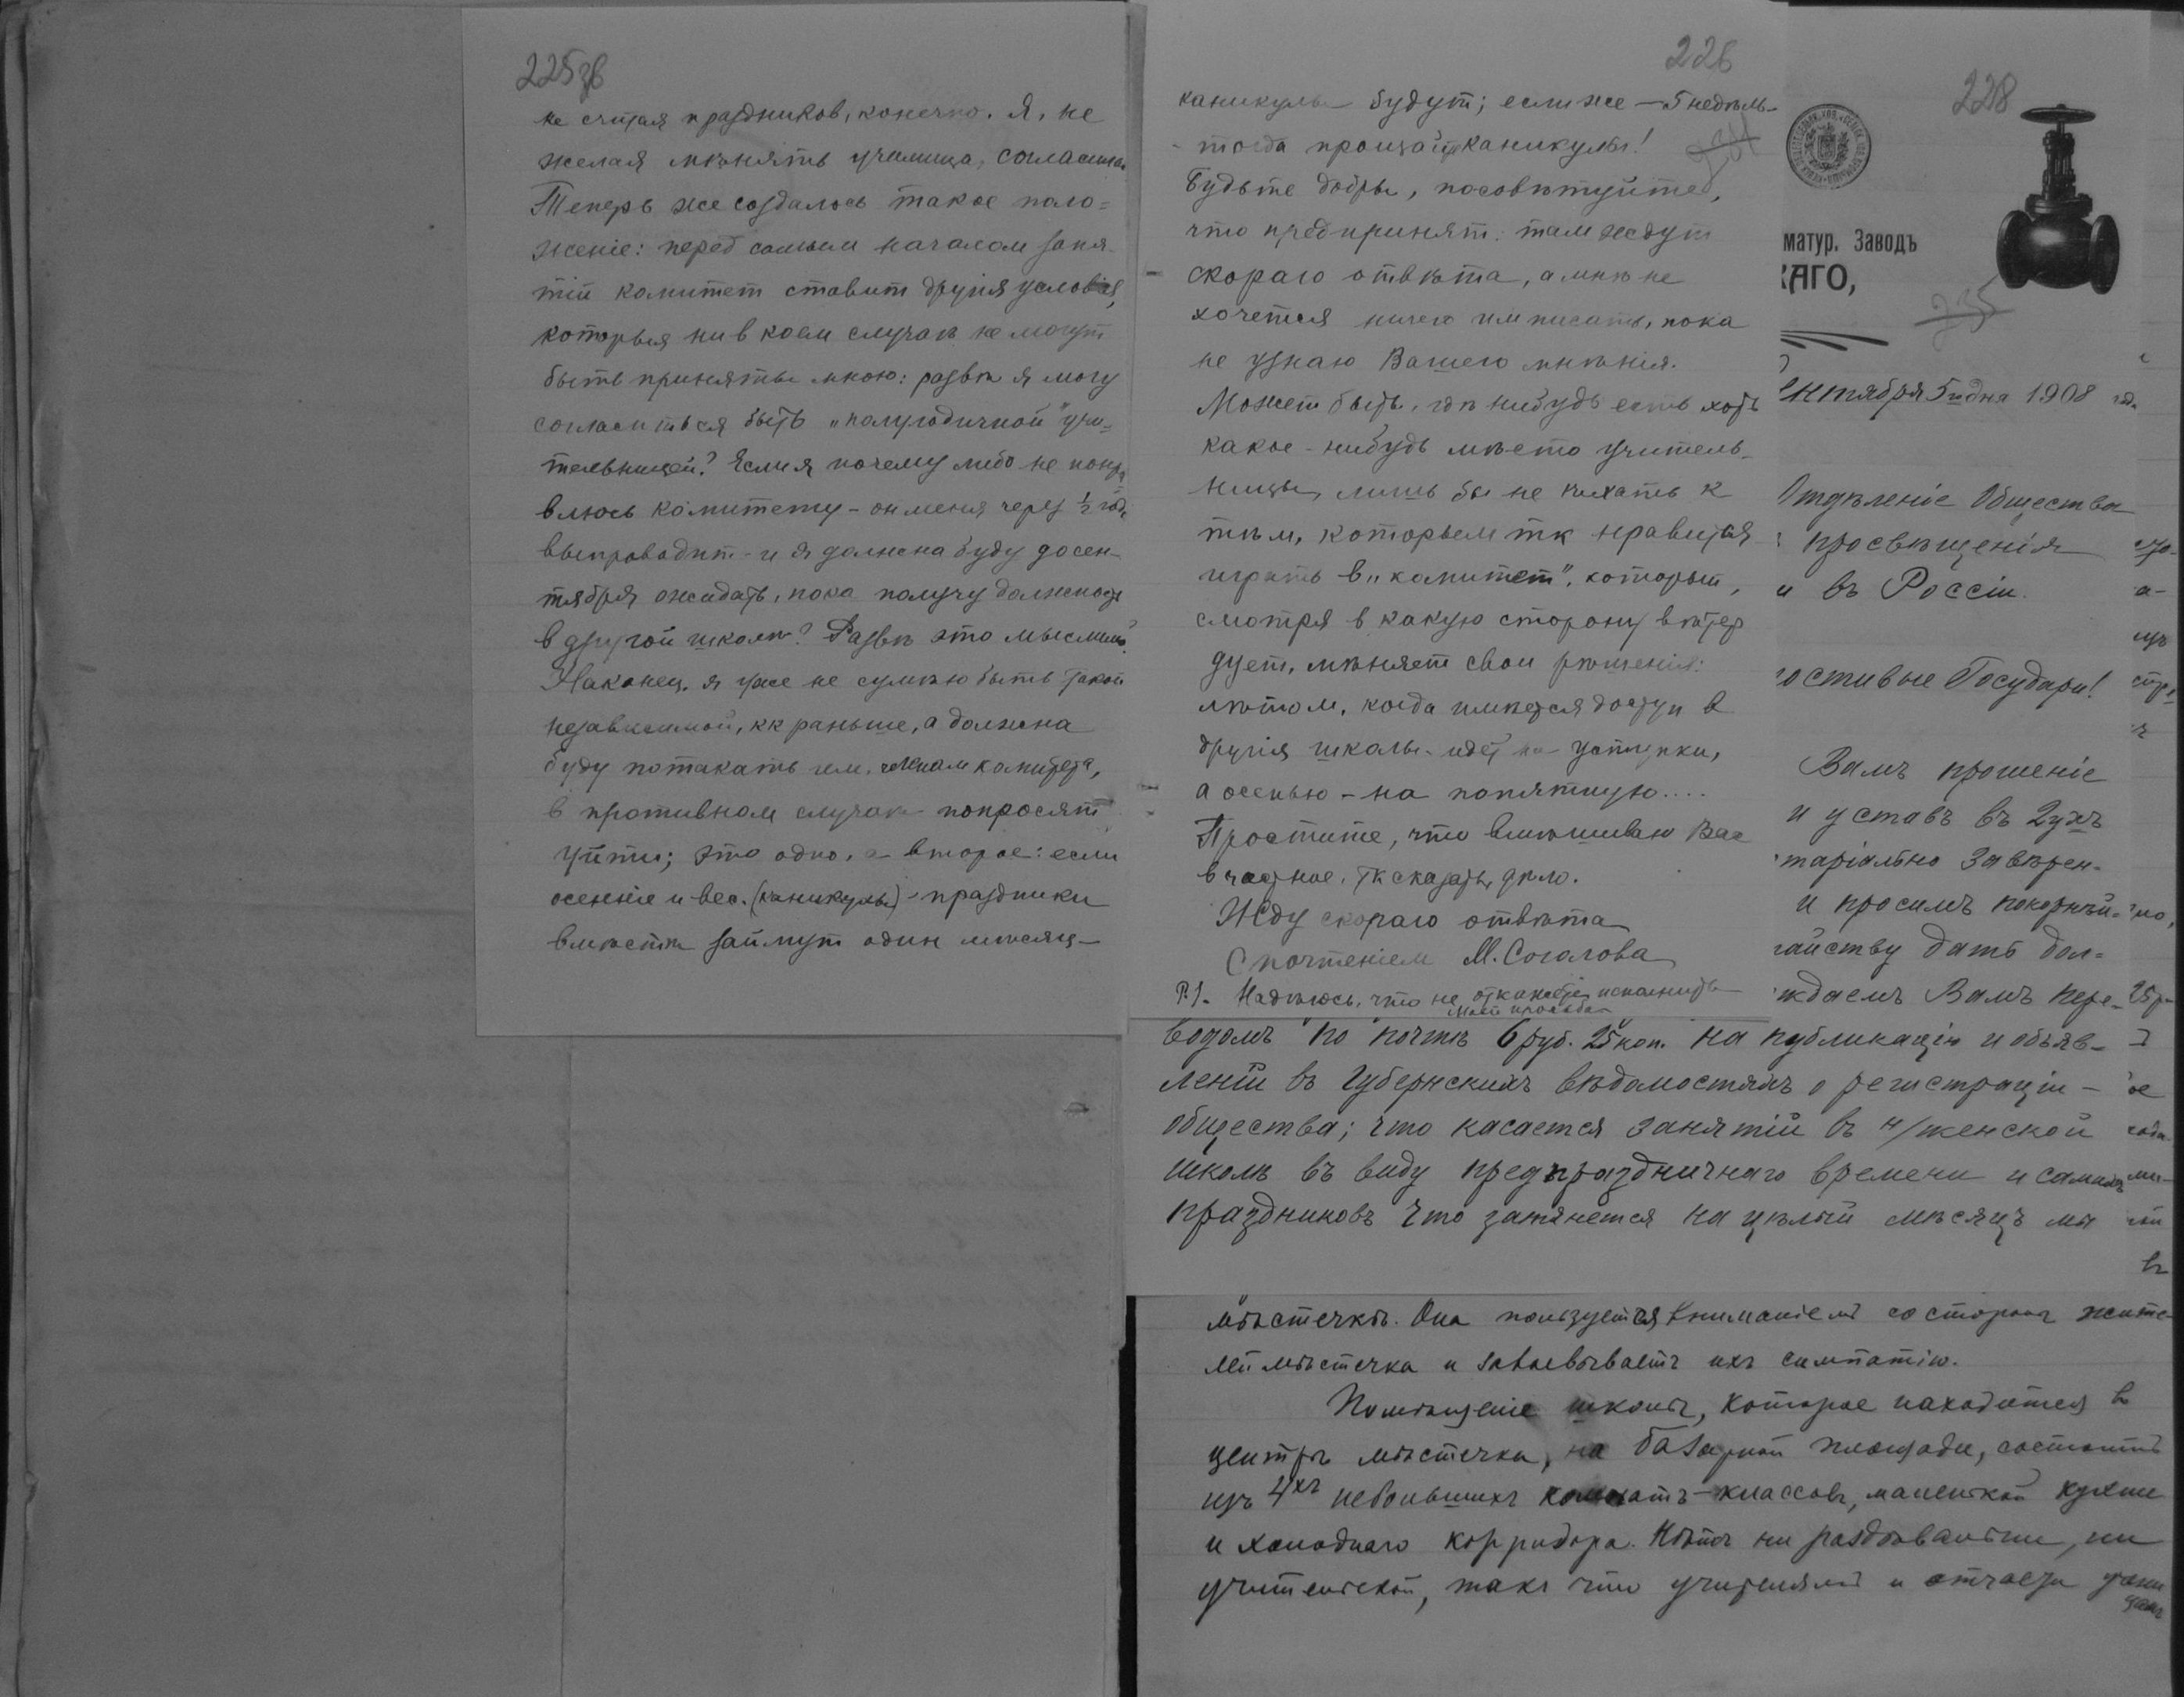 225зв
не считая праздников, конечно. Я, не
желая мѣнять училища, согласилась
Теперь же создалось такое поло=
женіе: перед самым началом заня-
тій комитет ставит другія условія,
которыя ни в коем случаѣ не могут
быть приняты мною: развѣ я могу
согласиться быть „полугодичной" учи=
тельницей? Если я почему либо не понра
влюсь комитету – он меня через ½ года
выпроводит – и я должна буду до сен-
тября ожидать, пока получу должность
в другой школѣ? Развѣ это мыслимо?
Наконец, я уже не сумѣю быть такой
независимой, кк раньше, а должна
буду потакать им, членам комитета,
в противном случаѣ попросят
уйти; это одно, а второе: если
осенніе и вес. (каникулы) – праздники
вмѣстѣ займут один мѣсяц –
226
каникулы будут; если же – 5 недѣль –
– тогда прощай каникулы!
234
Будьте добры, посовѣтуйте,
что предпринят. там ждут
скораго отвѣта, а мнѣ не
хочется ничего им писать, пока
не узнаю Вашего мнѣнія.
Может быть, гдѣ нибудь есть хоть
какое-нибудь мѣсто учитель-
ницы, лишь бы не ѣхать к
тѣм, которым тк нравится
играть в „комитет", который,
смотря в какую сторону вѣтер
дует, мѣняет свои рѣшенія:
лѣтом, когда имѣется доступ в
другія школы – идет на уступки,
а осенью – на попятную....
Простите, что вмѣшиваю Вас
в частное, тк сказать, дѣло.
Жду скораго отвѣта
С почтеніем М. Соголова
P.S. Надѣюсь, что не откажете исполнить
мою просьбу
228
матур. Заводъ
КАГО,
235
ентября 5 дня 1908 год.
Отдѣленіе Общества
просвѣщенія
и въ Россіи.
остивые Государи!
Вамъ прошеніе
и уставъ въ 2ухъ
таріально завѣрен-
и просимъ покорнѣй-
тайству дать дол=
ждаемъ Вамъ пере-
водомъ по почтѣ 6 руб. 25 коп. на публикацію и объяв-
леній въ Губернскихъ вѣдомостяхъ о регистраціи –
общества; что касается занятій въ н/женской
школѣ въ виду предпраздничнаго времени и самихъ
праздниковъ что затянется на цѣлый мѣсяцъ мы
мѣстечкѣ. Она пользуется вниманіемъ со стороны жите-
лей мѣстечка и завоевываетъ ихъ симпатію.
Помѣщеніе школы, которое находится в
центрѣ мѣстечка, на базарной площади, состоитъ
изъ 4хъ небольшихъ комнатъ-классовъ, маленькой кухни
и холоднаго корридора. Нѣтъ ни раздѣвальни, ни
учительской, такъ что учителямъ и отчасти учени
цамъ